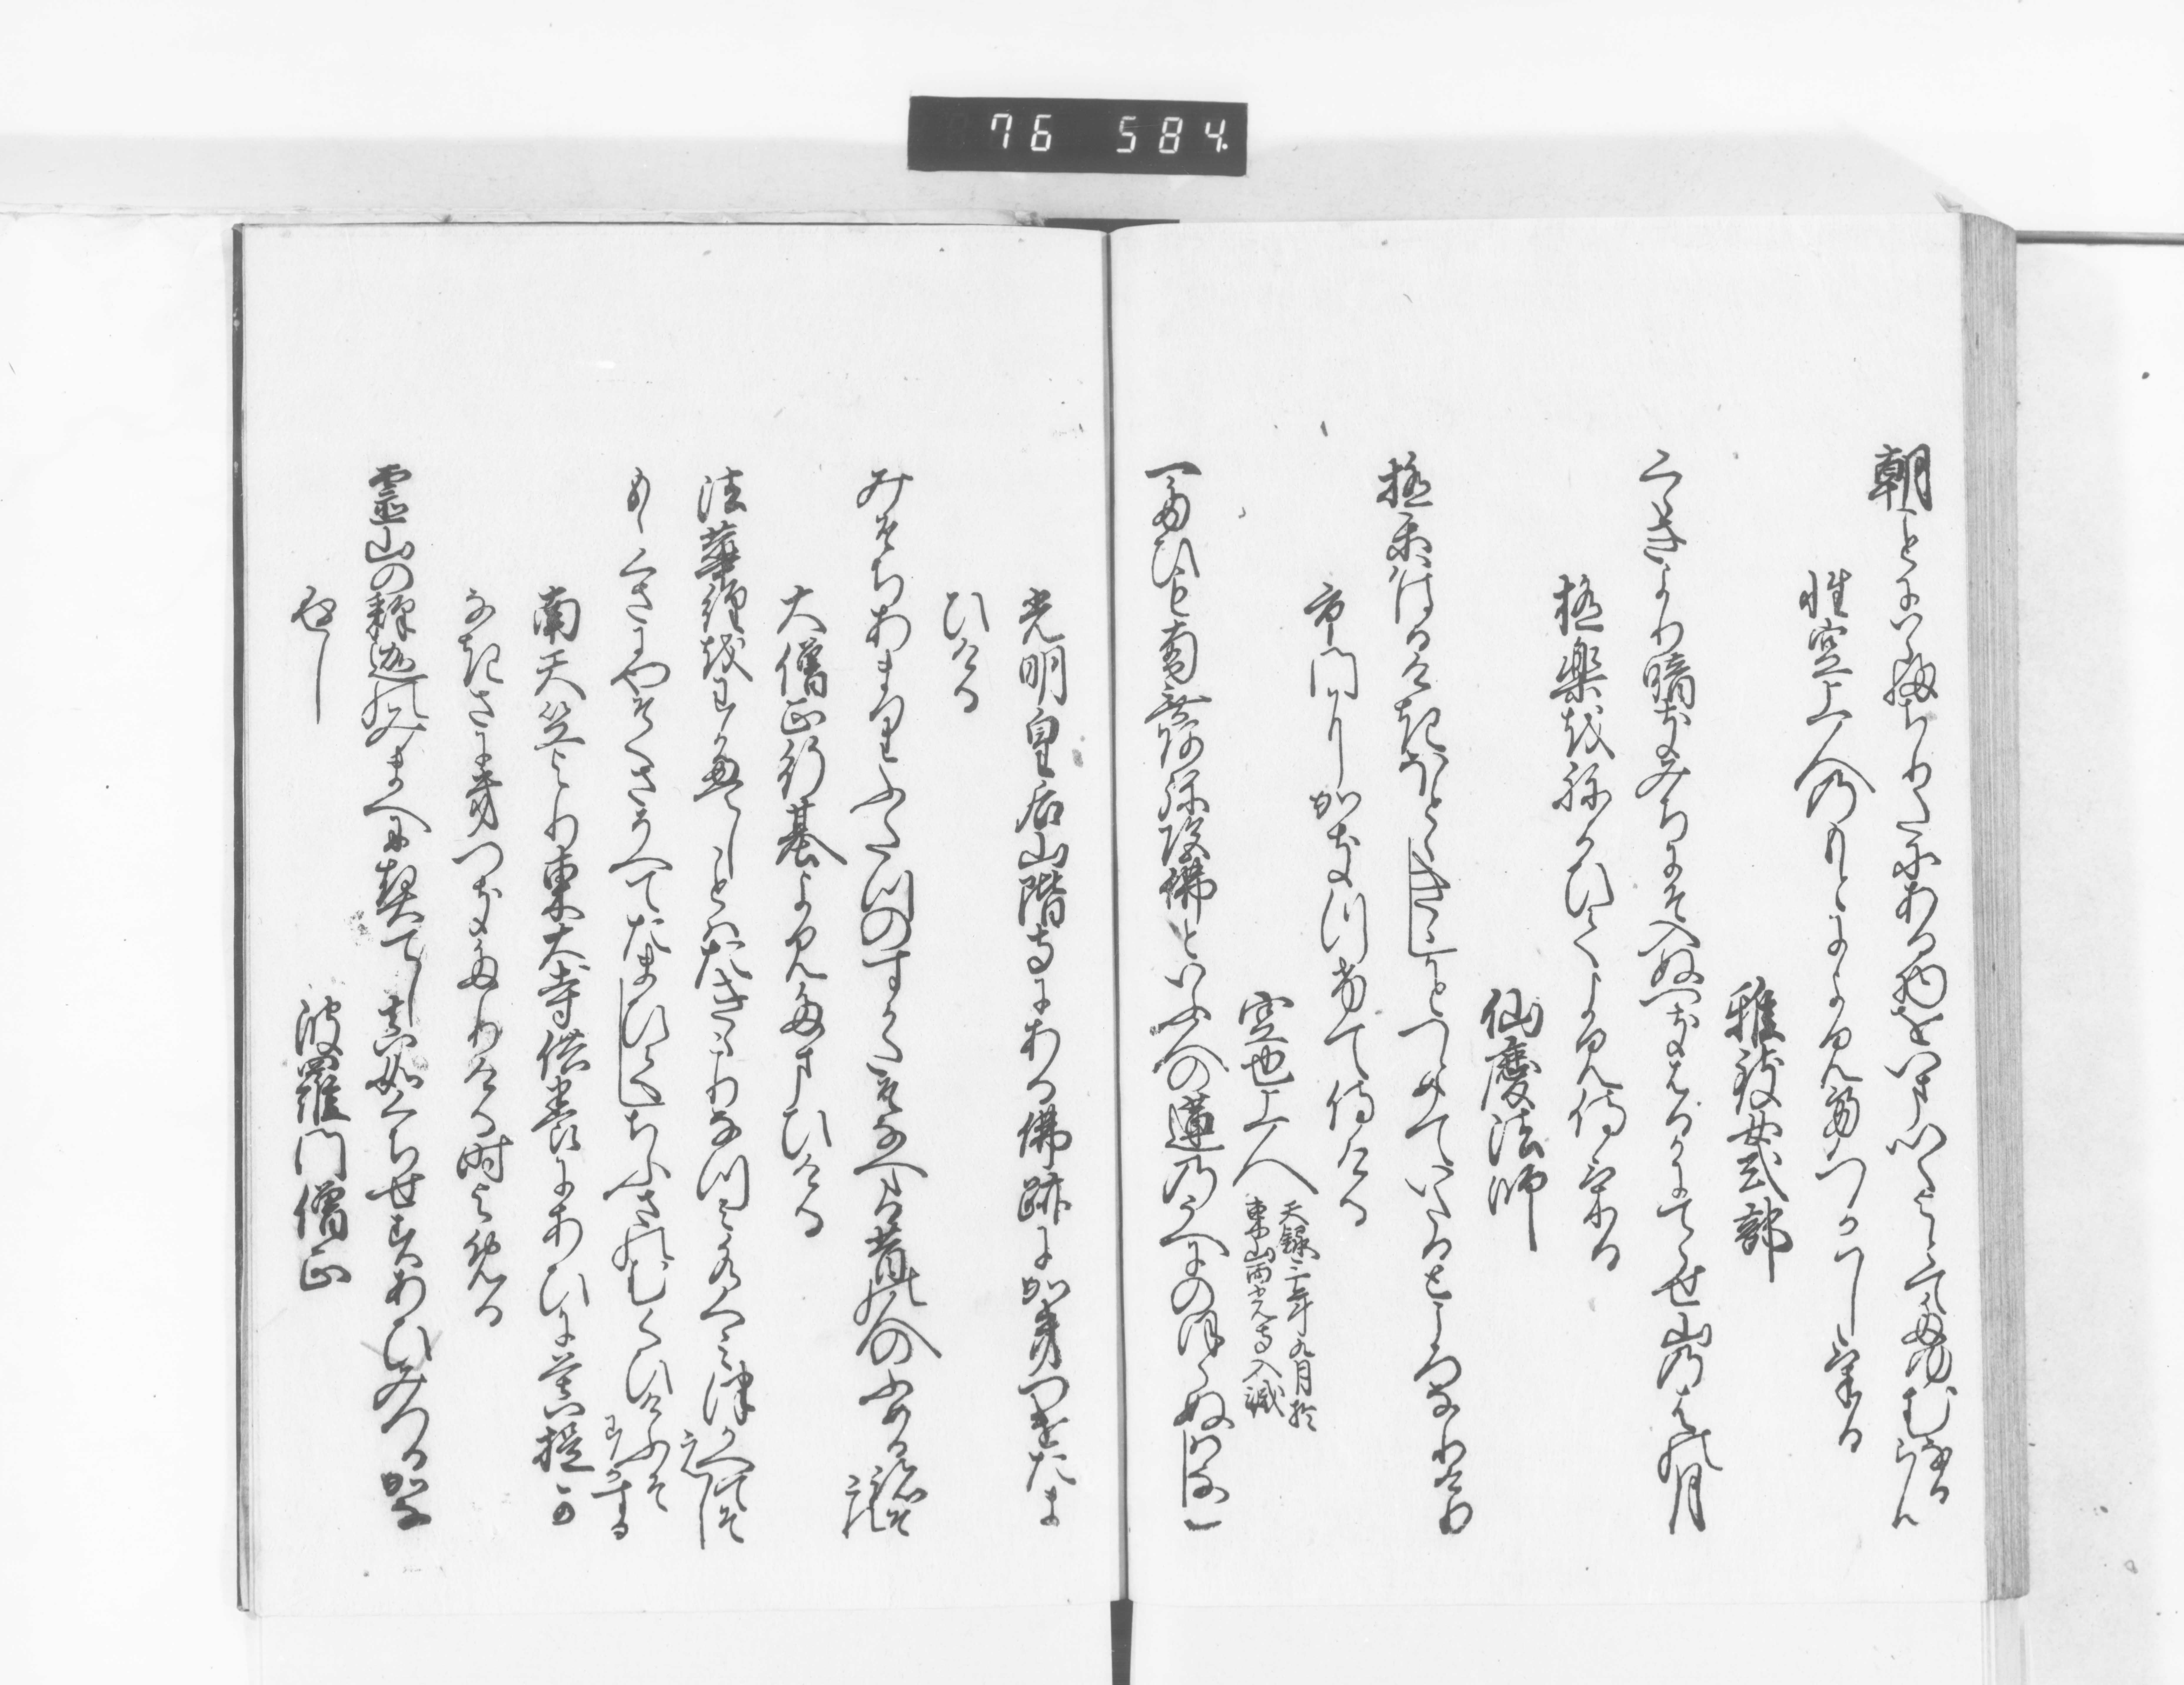 76 584
朝ことにはらふちりたにあるものをいまいくよとてたゆむなるらん
性空上人のもとによみてつかはしける
雅致女式部
くらきよりくらきみちにそ入ぬへきはるかにてらせ山のはの月
極楽をねかひてよみ侍ける
仙慶法師
極楽ははるけきほとゝきゝしかとつとめていたるところなりけり
市門にかきつけて侍ける
空也上人
天禄三年九月於
東山西光寺入滅
一たひも南無阿弥陀佛といふ人の蓮のうへにのほらぬはなし
光明皇后山階寺にある佛跡にかきつけたま
ひける
みそちあまりふたつのすかたそなへたる昔の人のふめる跡そこれ
大僧正行基よみたまひける
法華経をわかえしことはたきゝこりなつみ水くみつかへてそえし
もゝくさにやそくさそへてたまひてしちふさのむくひけふそわかする
南天竺より東大寺供養にあひに菩提か
なきさにきつきたりける時よめる
霊山の釈迦のみまへに契てし真如くちせすあひみつるかな
返し
波羅門僧正